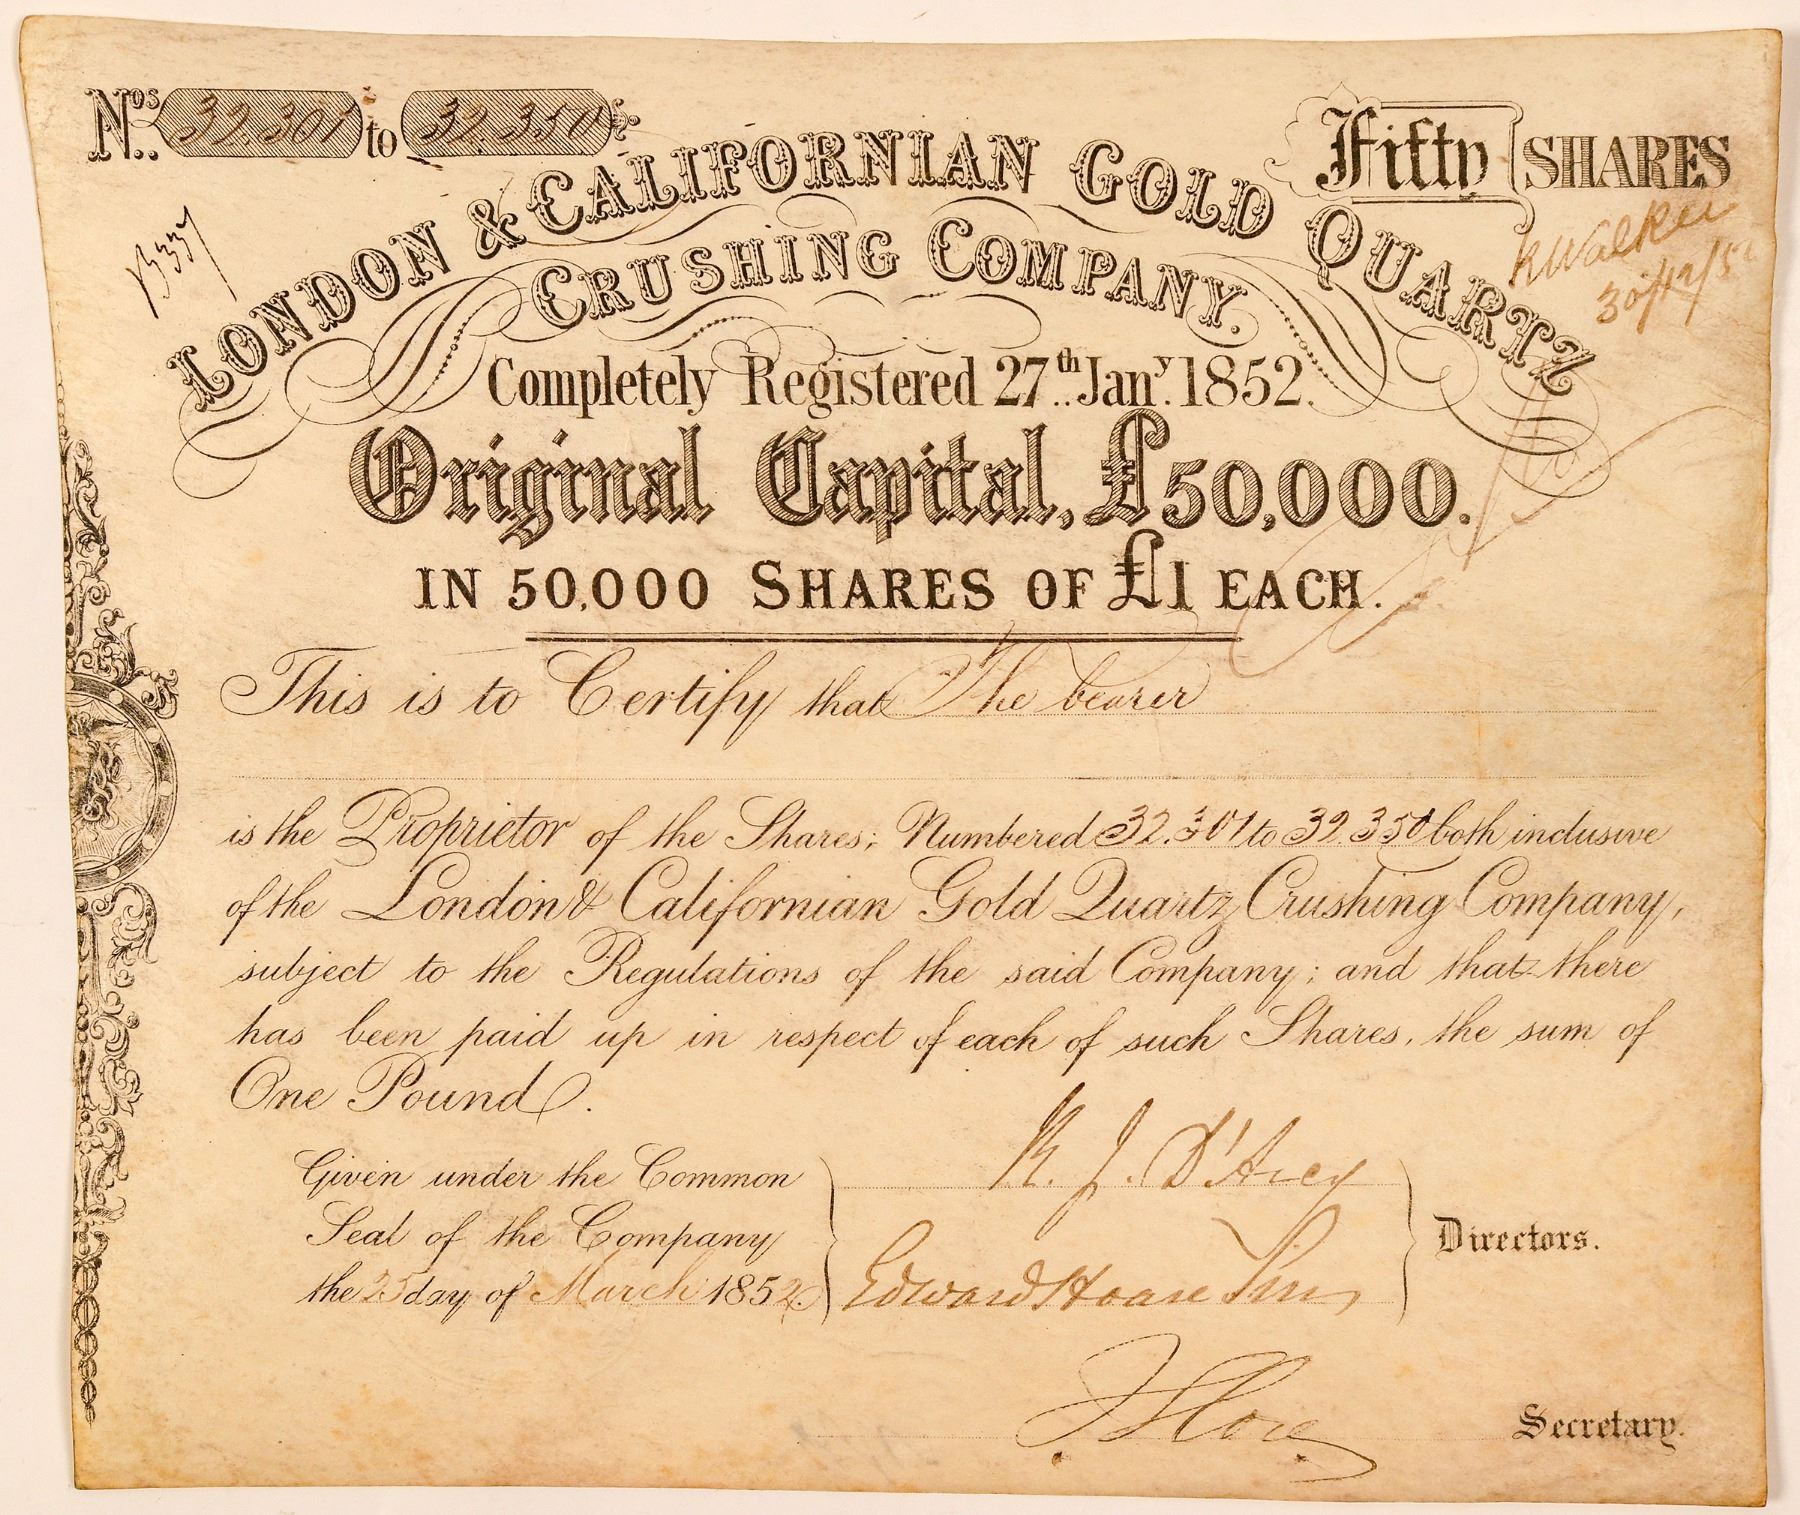 Nos. 32.301 to 32.350
Fifty SHARES
B337
R Walker
30/12/52
LONDON & CALIFORNIAN GOLD QUARTZ
CRUSHING COMPANY.
Completely Registered 27th Jany. 1852.
Original Capital, £50,000.
IN 50,000 SHARES OF £1 EACH.
This is to Certify that The bearer
is the Proprietor of the Shares; Numbered 32.301 to 32.350 both inclusive
of the London & Californian Gold Quartz Crushing Company,
subject to the Regulations of the said Company; and that there
has been paid up in respect of each of such Shares, the sum of
One Pound.
Given under the Common
Seal of the Company
the 25 day of March 1852.
R. J. D'Arcy
Edward Hoare
Directors.
Secretary.